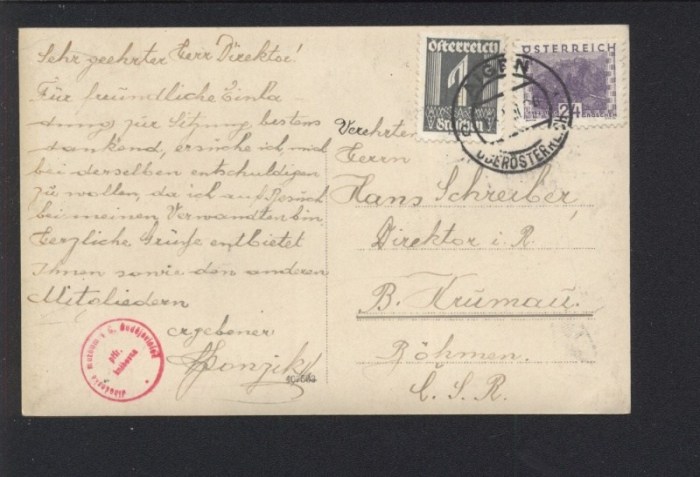 Sehr geehrter Herr Direktor!
Für freundliche Einla-
dung zur Sitzung bestens
dankend, ersuche ich, mich
bei derselben entschuldigen
zu wollen, da ich auf Besuch
bei meinen Verwandten bin.
Herzliche Grüße entbietet
Ihnen sowie den anderen
Mitgliedern
ergebener
Österreich
1
Groschen
ÖSTERREICH
24
AIGEN
OBERÖSTERREICH
Verehrten
Herrn
Hans Schreiber,
Direktor i. R.
B. Krumau.
Böhmen.
Č. S. R.
museum v Č. Budějovicích